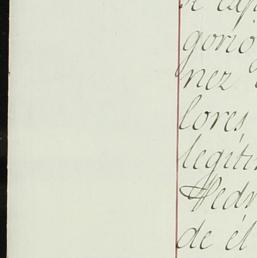 gorio
nez
lores
legíti
Pedr
de él